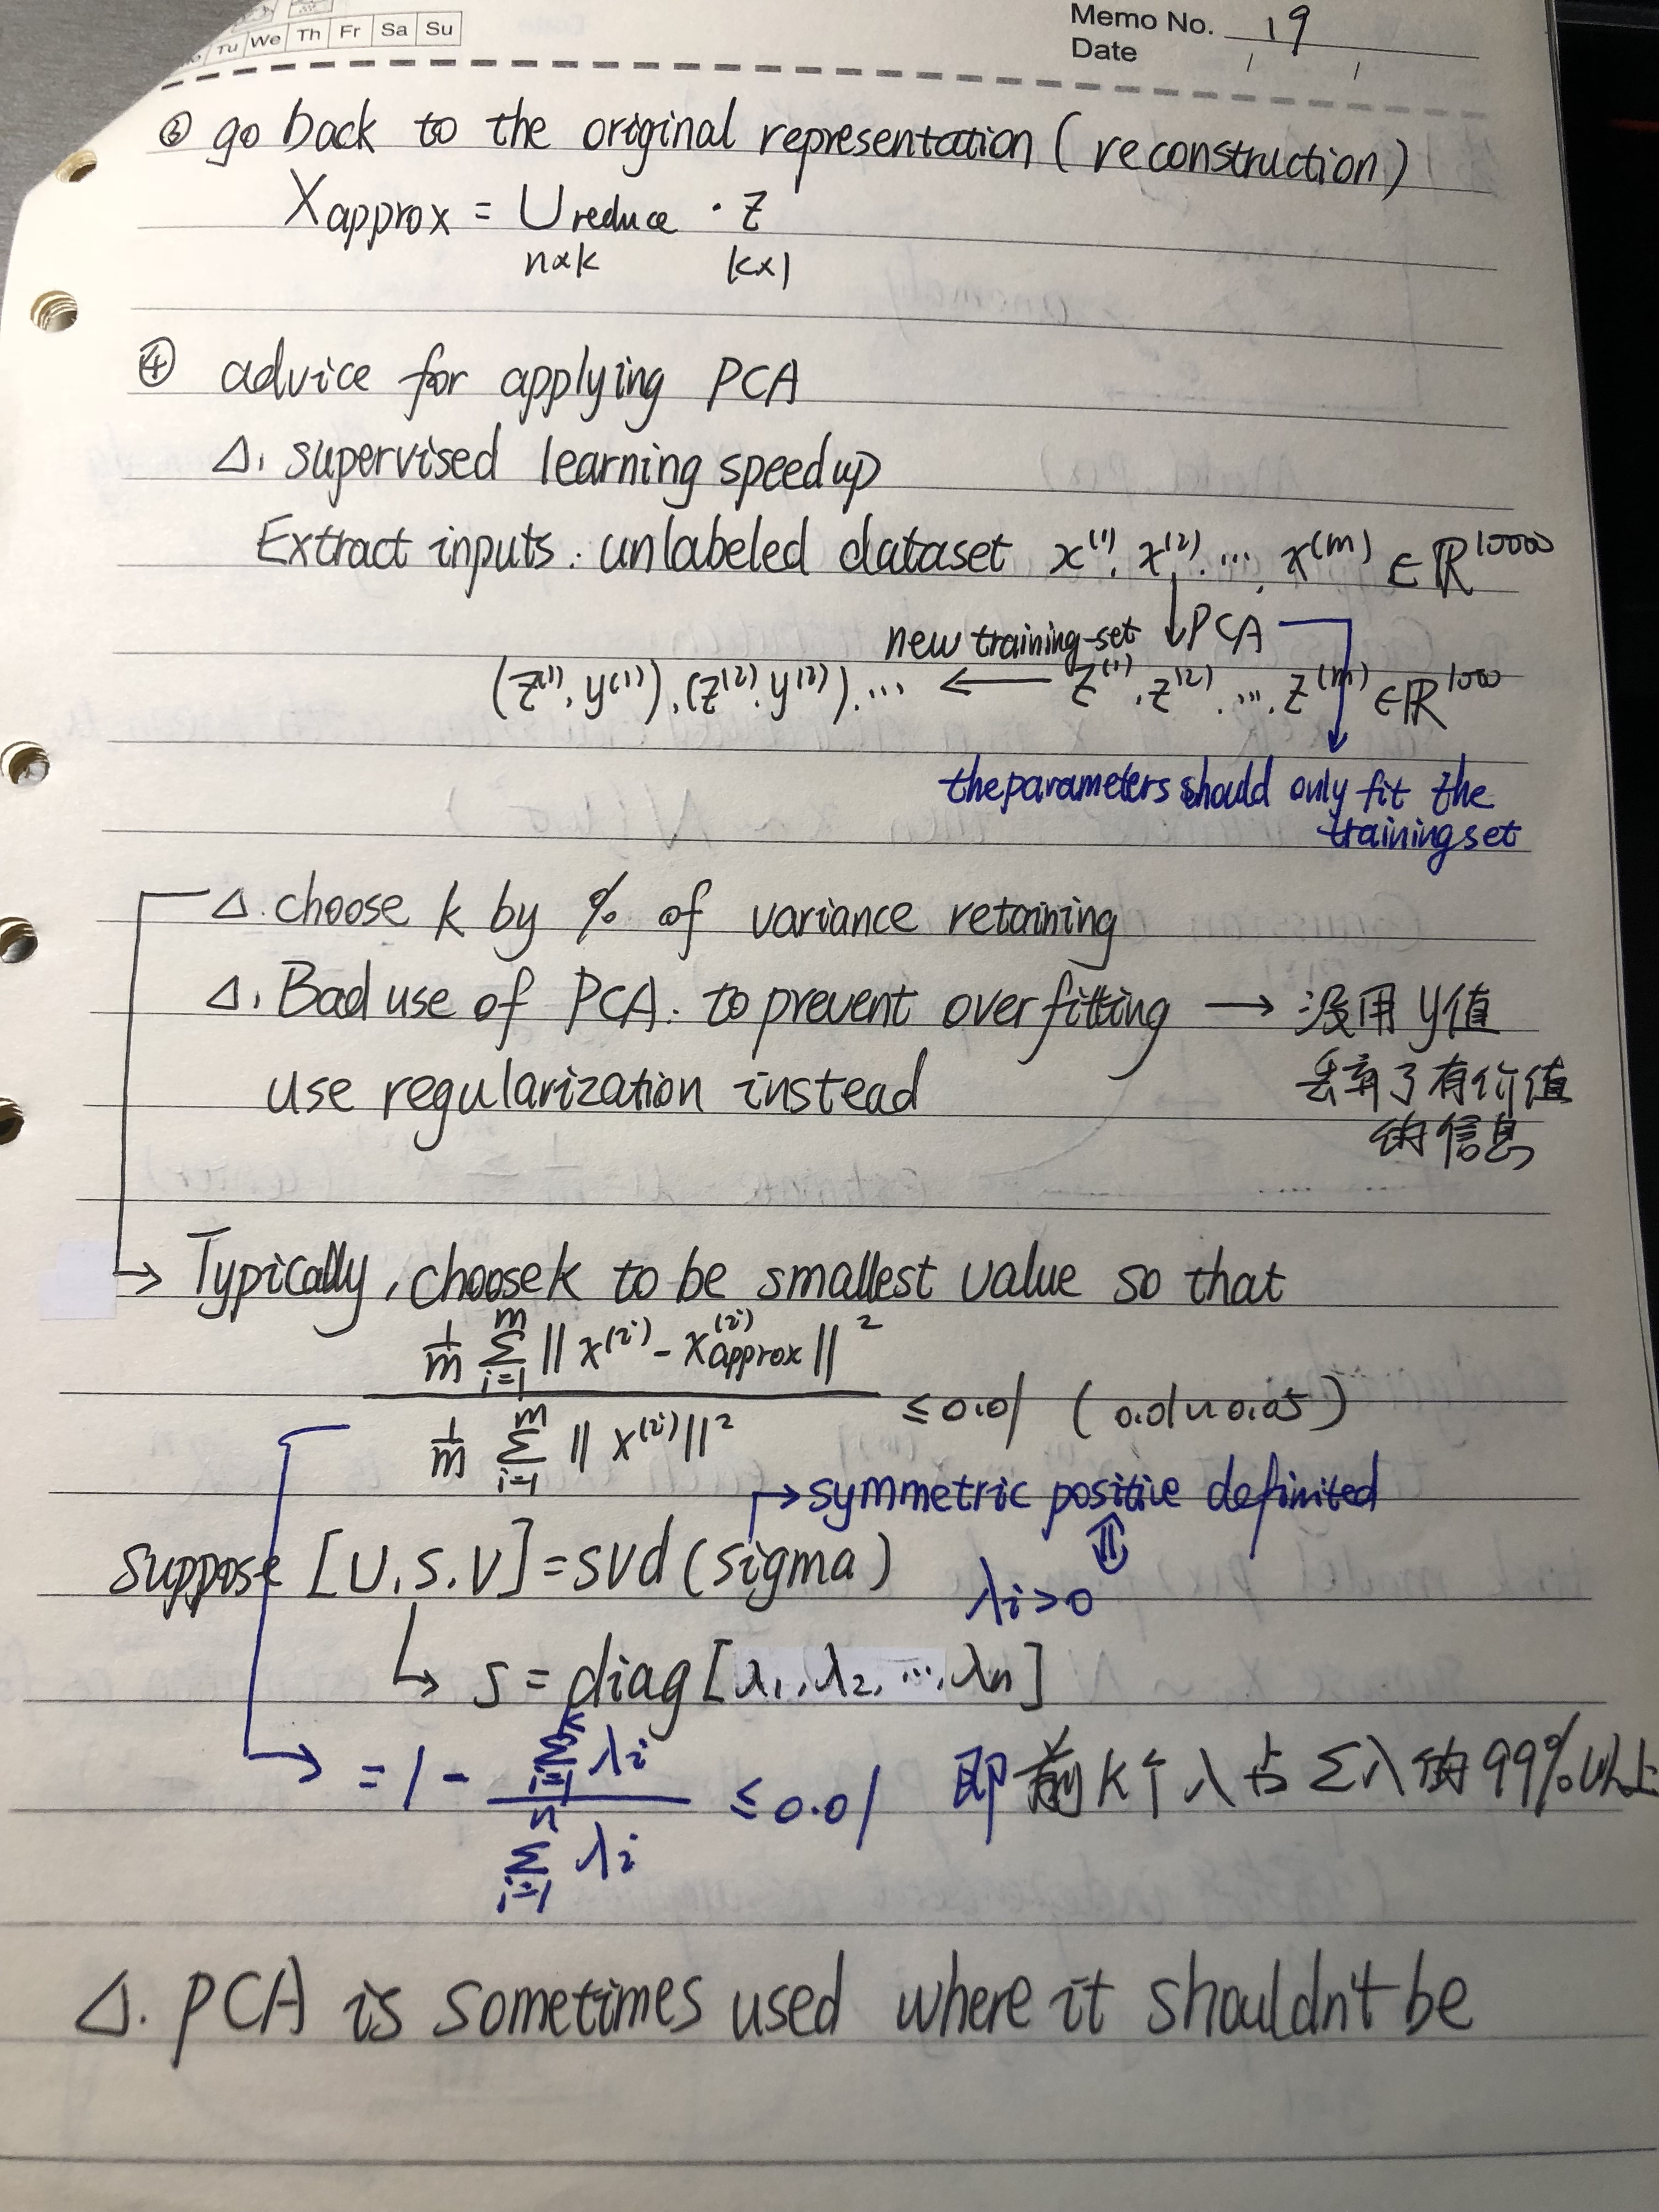 Tu We Th Fr Sa Su
Memo No. 19
Date / /
③ go back to the original representation (reconstruction)
Xapprox = Ureduce · z
n×k k×1
④ advice for applying PCA
△. supervised learning speedup
Extract inputs: unlabeled dataset x⁽¹⁾, x⁽²⁾, ..., x⁽ᵐ⁾ ∈ ℝ¹⁰⁰⁰⁰
↓ PCA
new training set
(z⁽¹⁾, y⁽¹⁾), (z⁽²⁾, y⁽²⁾), ... ← z⁽¹⁾, z⁽²⁾, ..., z⁽ᵐ⁾ ∈ ℝ¹⁰⁰⁰
the parameters should only fit the
training set
△. choose k by % of variance retaining
△. Bad use of PCA: to prevent overfitting → 没用 y值
use regularization instead 丢弃了有价值
的信息
→ Typically, choose k to be smallest value so that
1/m Σᵢ₌₁ᵐ ‖x⁽ⁱ⁾ - x⁽ⁱ⁾approx‖²
≤ 0.01 (0.01~0.05)
1/m Σᵢ₌₁ᵐ ‖x⁽ⁱ⁾‖²
→ symmetric positive definited
⇕
suppose [U, S, V] = svd (sigma)
λi > 0
↳ S = diag [λ₁, λ₂, ..., λn]
→ = 1 - Σᵢ₌₁ᵏ λi / Σᵢ₌₁ⁿ λi ≤ 0.01 即前k个λ占Σλ的99%以上
△. PCA is sometimes used where it shouldn't be